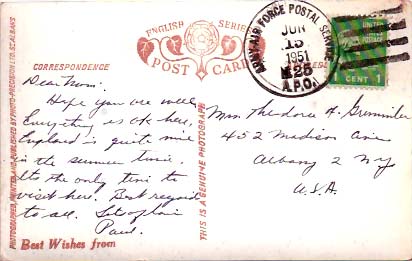 PHOTOGRAPHED, PRINTED AND PUBLISHED BY PHOTO-PRECISION LTD. ST. ALBANS
CORRESPONDENCE
ENGLISH SERIES
POST CARD
Dear Mom:
Hope you are well.
Everything is o.k. here.
England is quite nice
in the summer time.
It's the only time to
visit here. Best regards
to all. Lots of love
Paul.
Best Wishes from
THIS IS A GENUINE PHOTOGRAPH
ARMY-AIR FORCE POSTAL SERVICE
JUN
15
1951
25
A.P.O.
UNITED STATES
POSTAGE
CENT 1
Mrs. Theodora A.
452 Madison Ave
Albany 2 NY
U.S.A.